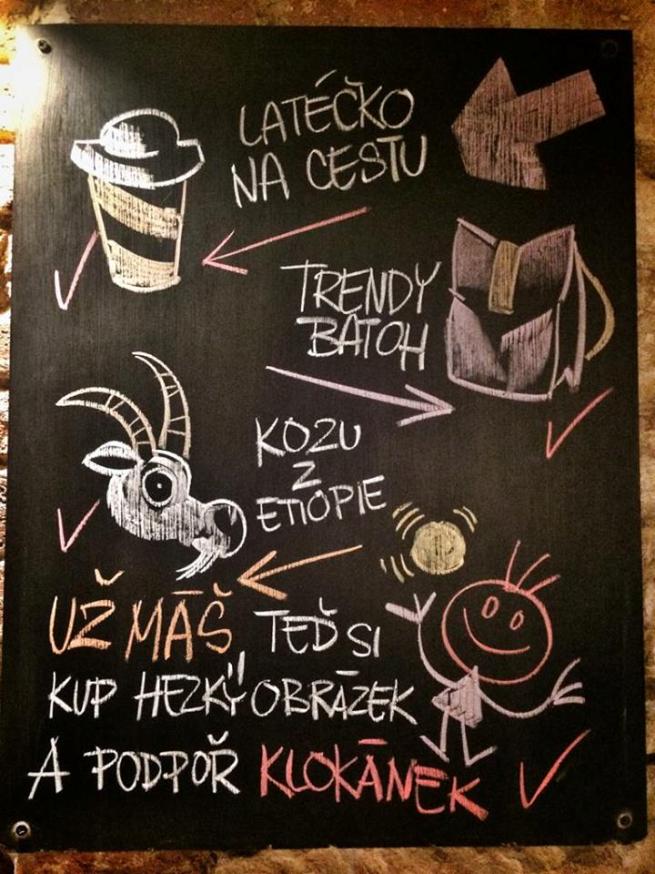 LATÉČKO
NA CESTU
TRENDY
BATOH
KOZU
Z
ETIOPIE
UŽ MÁŠ, TEĎ SI
KUP HEZKÝ OBRÁZEK
A PODPOŘ KLOKÁNEK